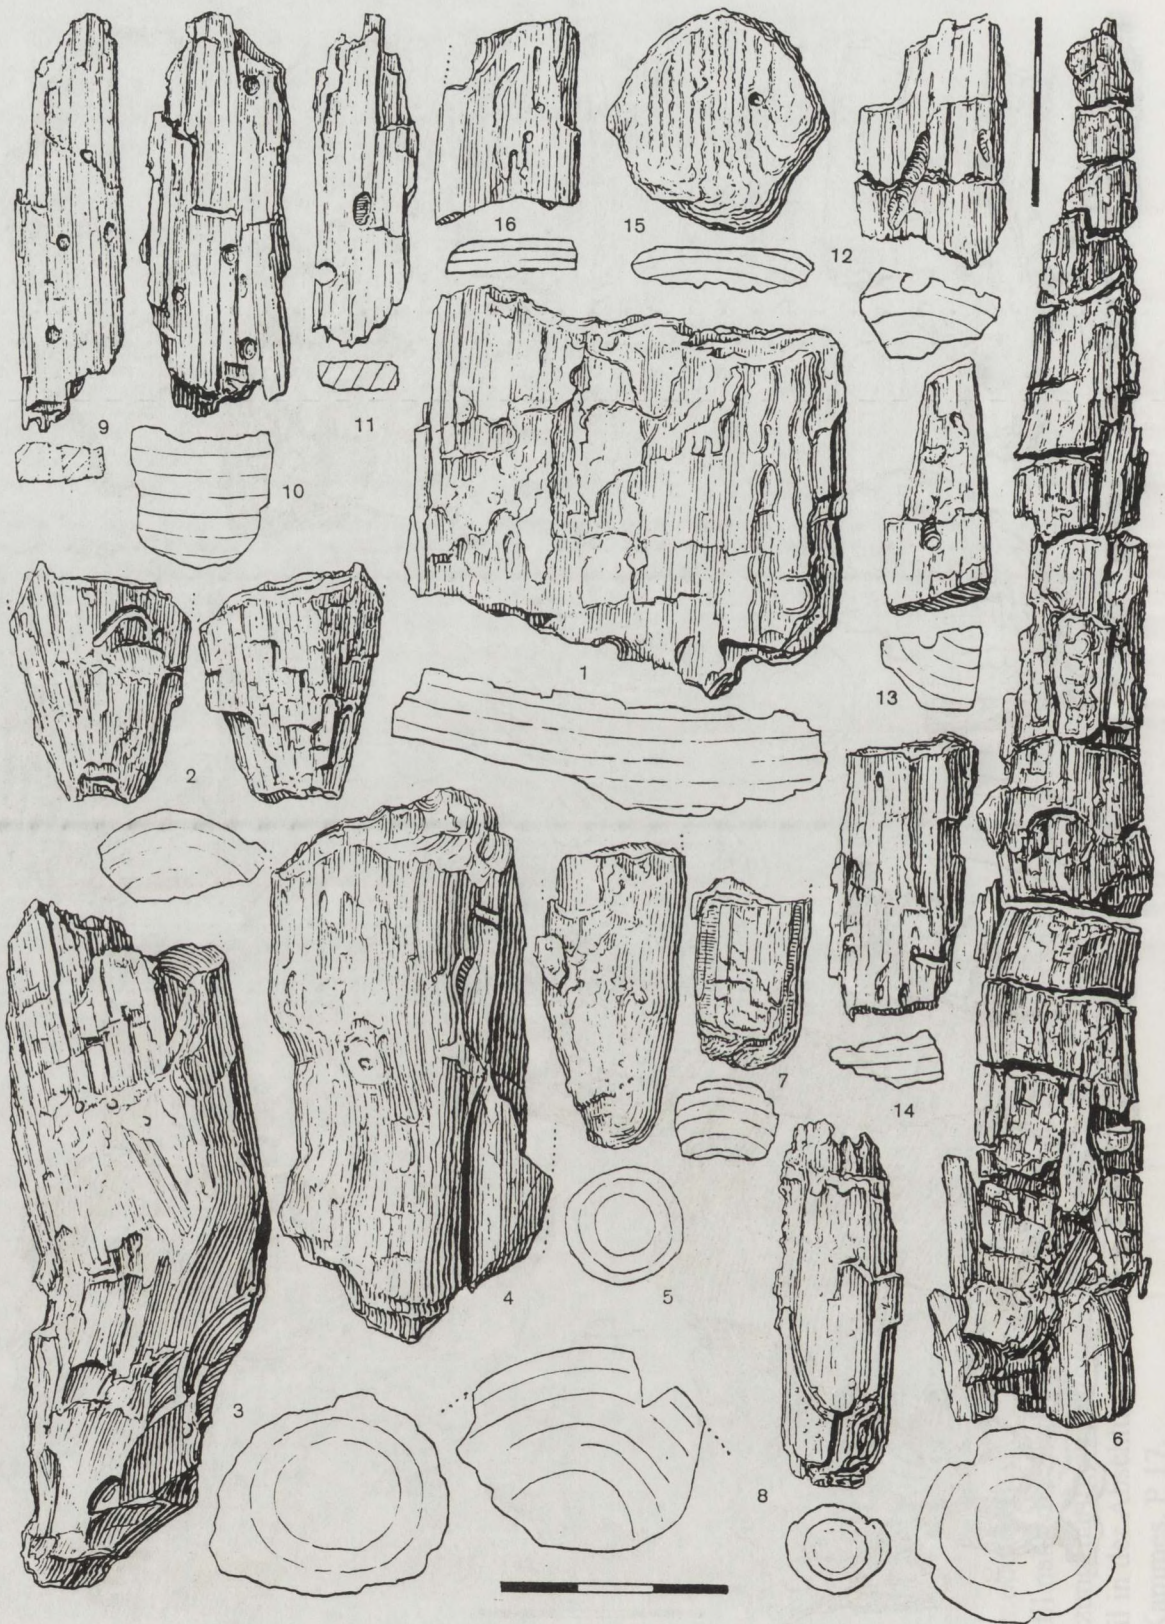 16
15
12
9
11
10
1
13
2
7
14
4
5
3
8
6